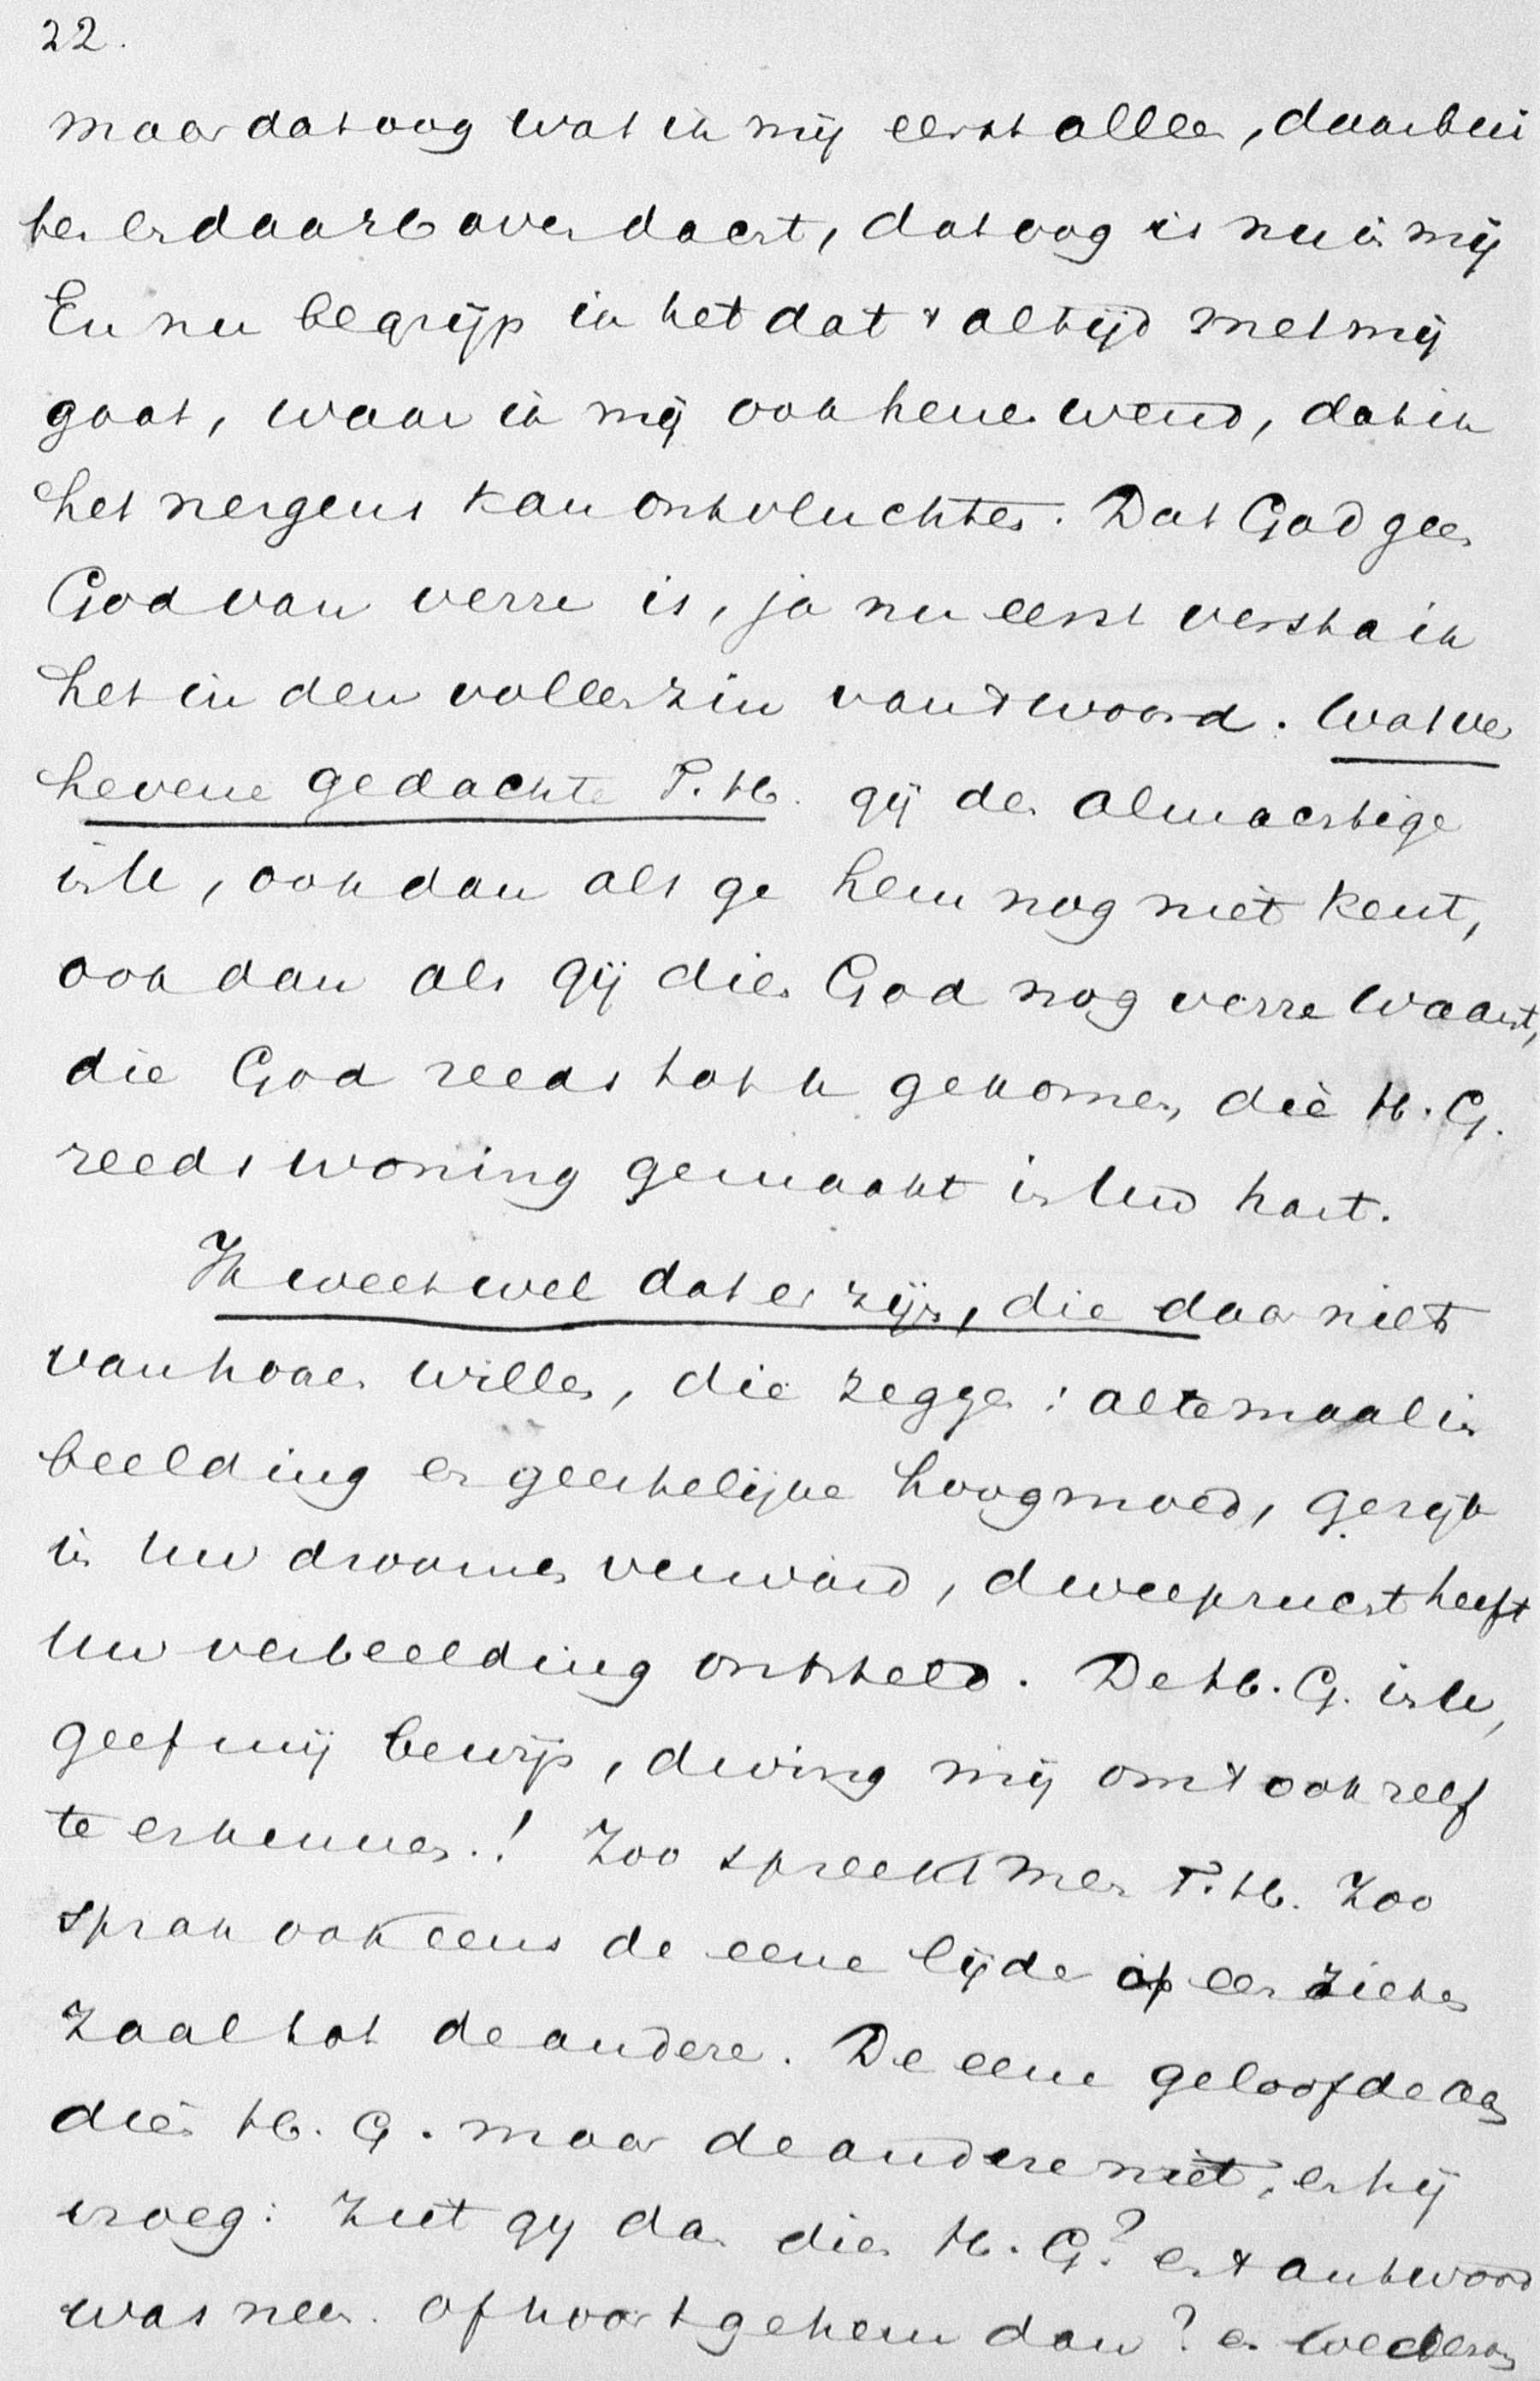 22.
maar dat oog wat ik mij eerst alleen, daarbui
ten en daarboven dacht, dat oog is nu in mij
En nu begrijp ik het dat 't altijd met mij
gaat, waar ik mij ook henen wend, dat ik
het nergens kan ontvluchten. Dat God geen
God van verre is, ja nu eerst versta ik
het in den vollen zin van 't woord. Wat ver
hevene gedachte T.H. gij den Almachtige
in U, ook dan als ge hem nog niet kent,
ook dan als gij dien God nog verre waant,
die God reeds tot u gekomen, die H.G.
reeds woning gemaakt in Uw hart.
Ik weet wel dat er zijn, die daar niet
van hooren willen, die zeggen: altemaal in
beelding en geestelijke hoogmoed, gerijk
in Uw droomen verward, dweepzucht heeft
Uw verbeelding ontsteld. De H.G. in U,
geef mij bewijs, dwing mij om 't ook zelf
te erkennen.! Zoo spreekt men T.H. Zoo
sprak ook eens de eene lijder op een zieken
zaal tot de andere. De eene geloofde aan
dien H.G. maar de andere niet, en hij
vroeg: Ziet gij dan dien H.G.? en 't antwoord
was neen. Of hoort ge hem dan? en wederom